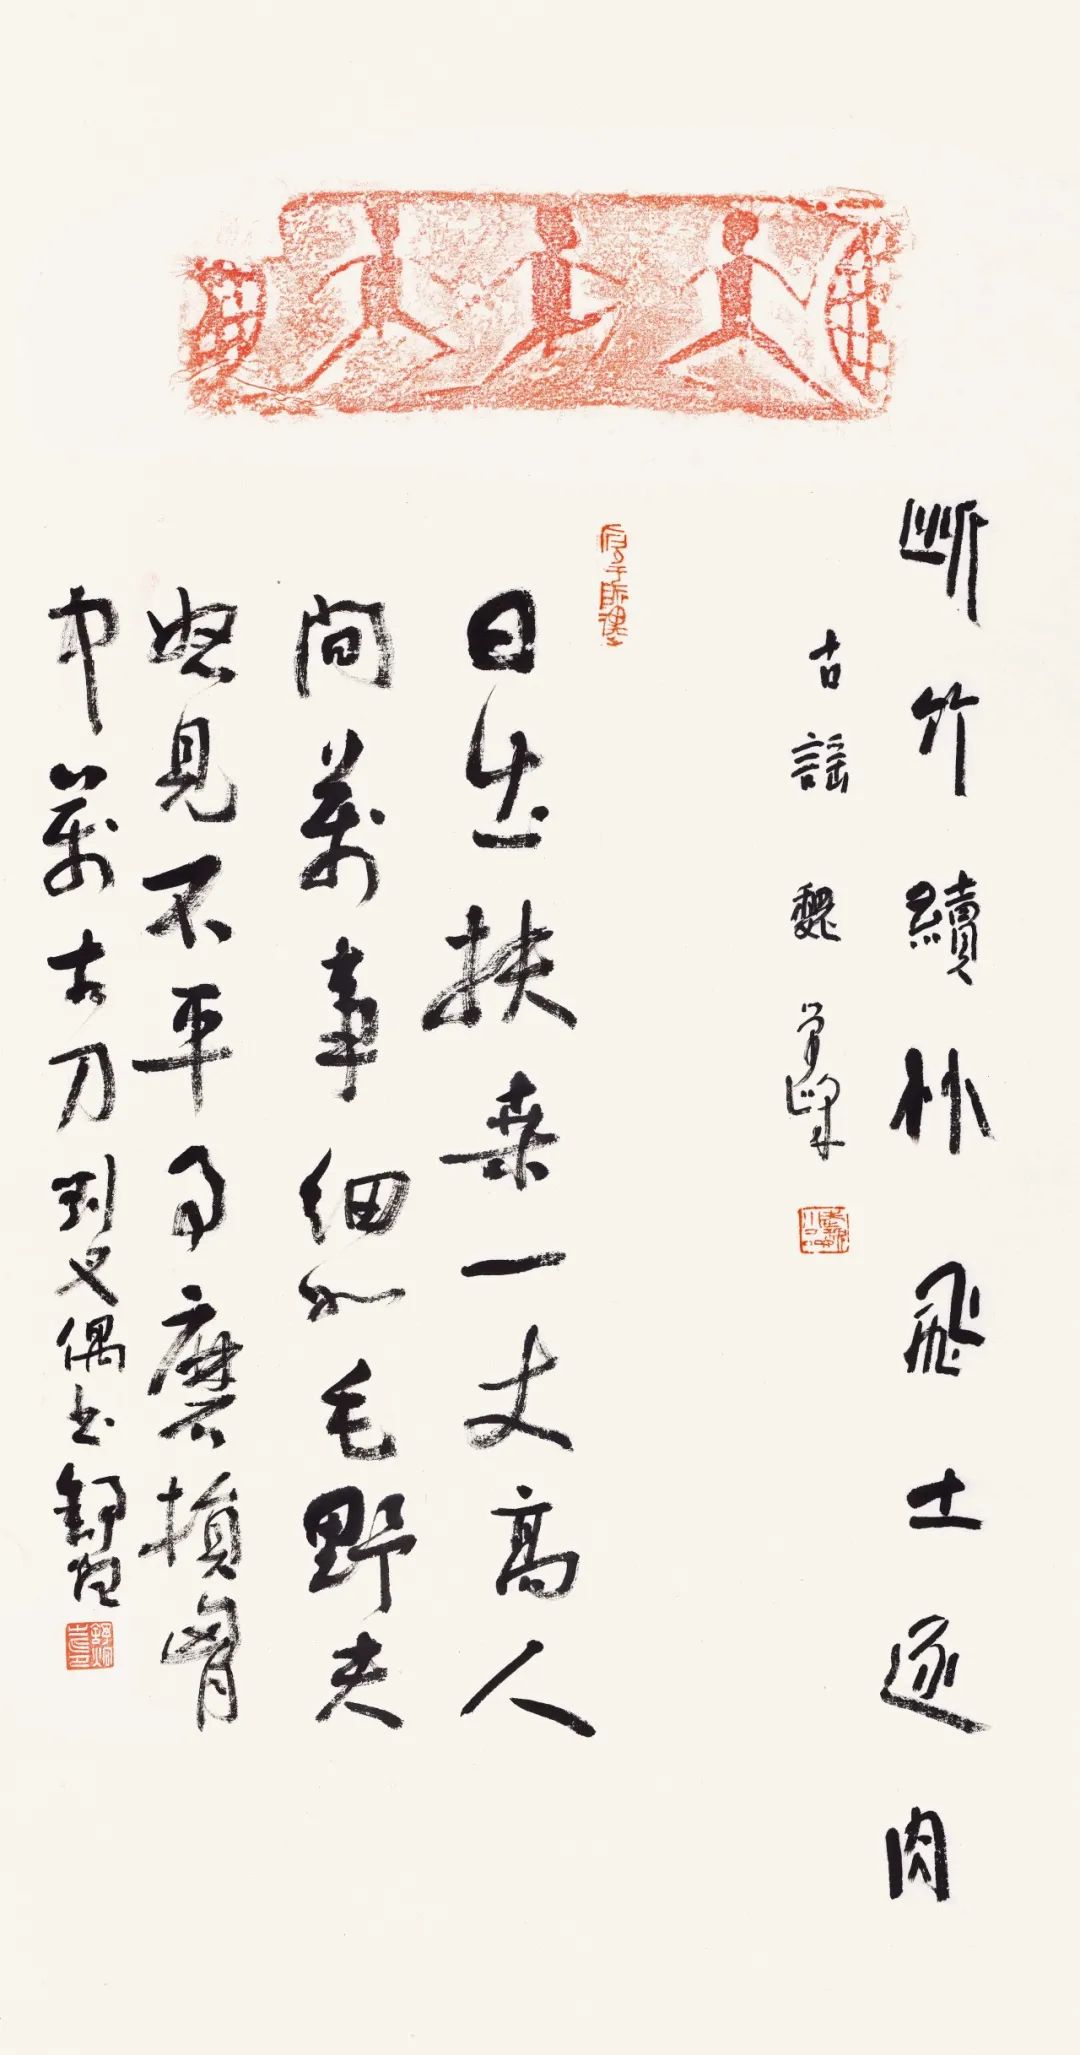 斷竹續竹飛土逐肉
古謠 魏學峰
日出扶桑一丈高人
間萬事細如毛野夫
怒見不平事磨損胷
中萬古刀 劉叉偶書 舒炯